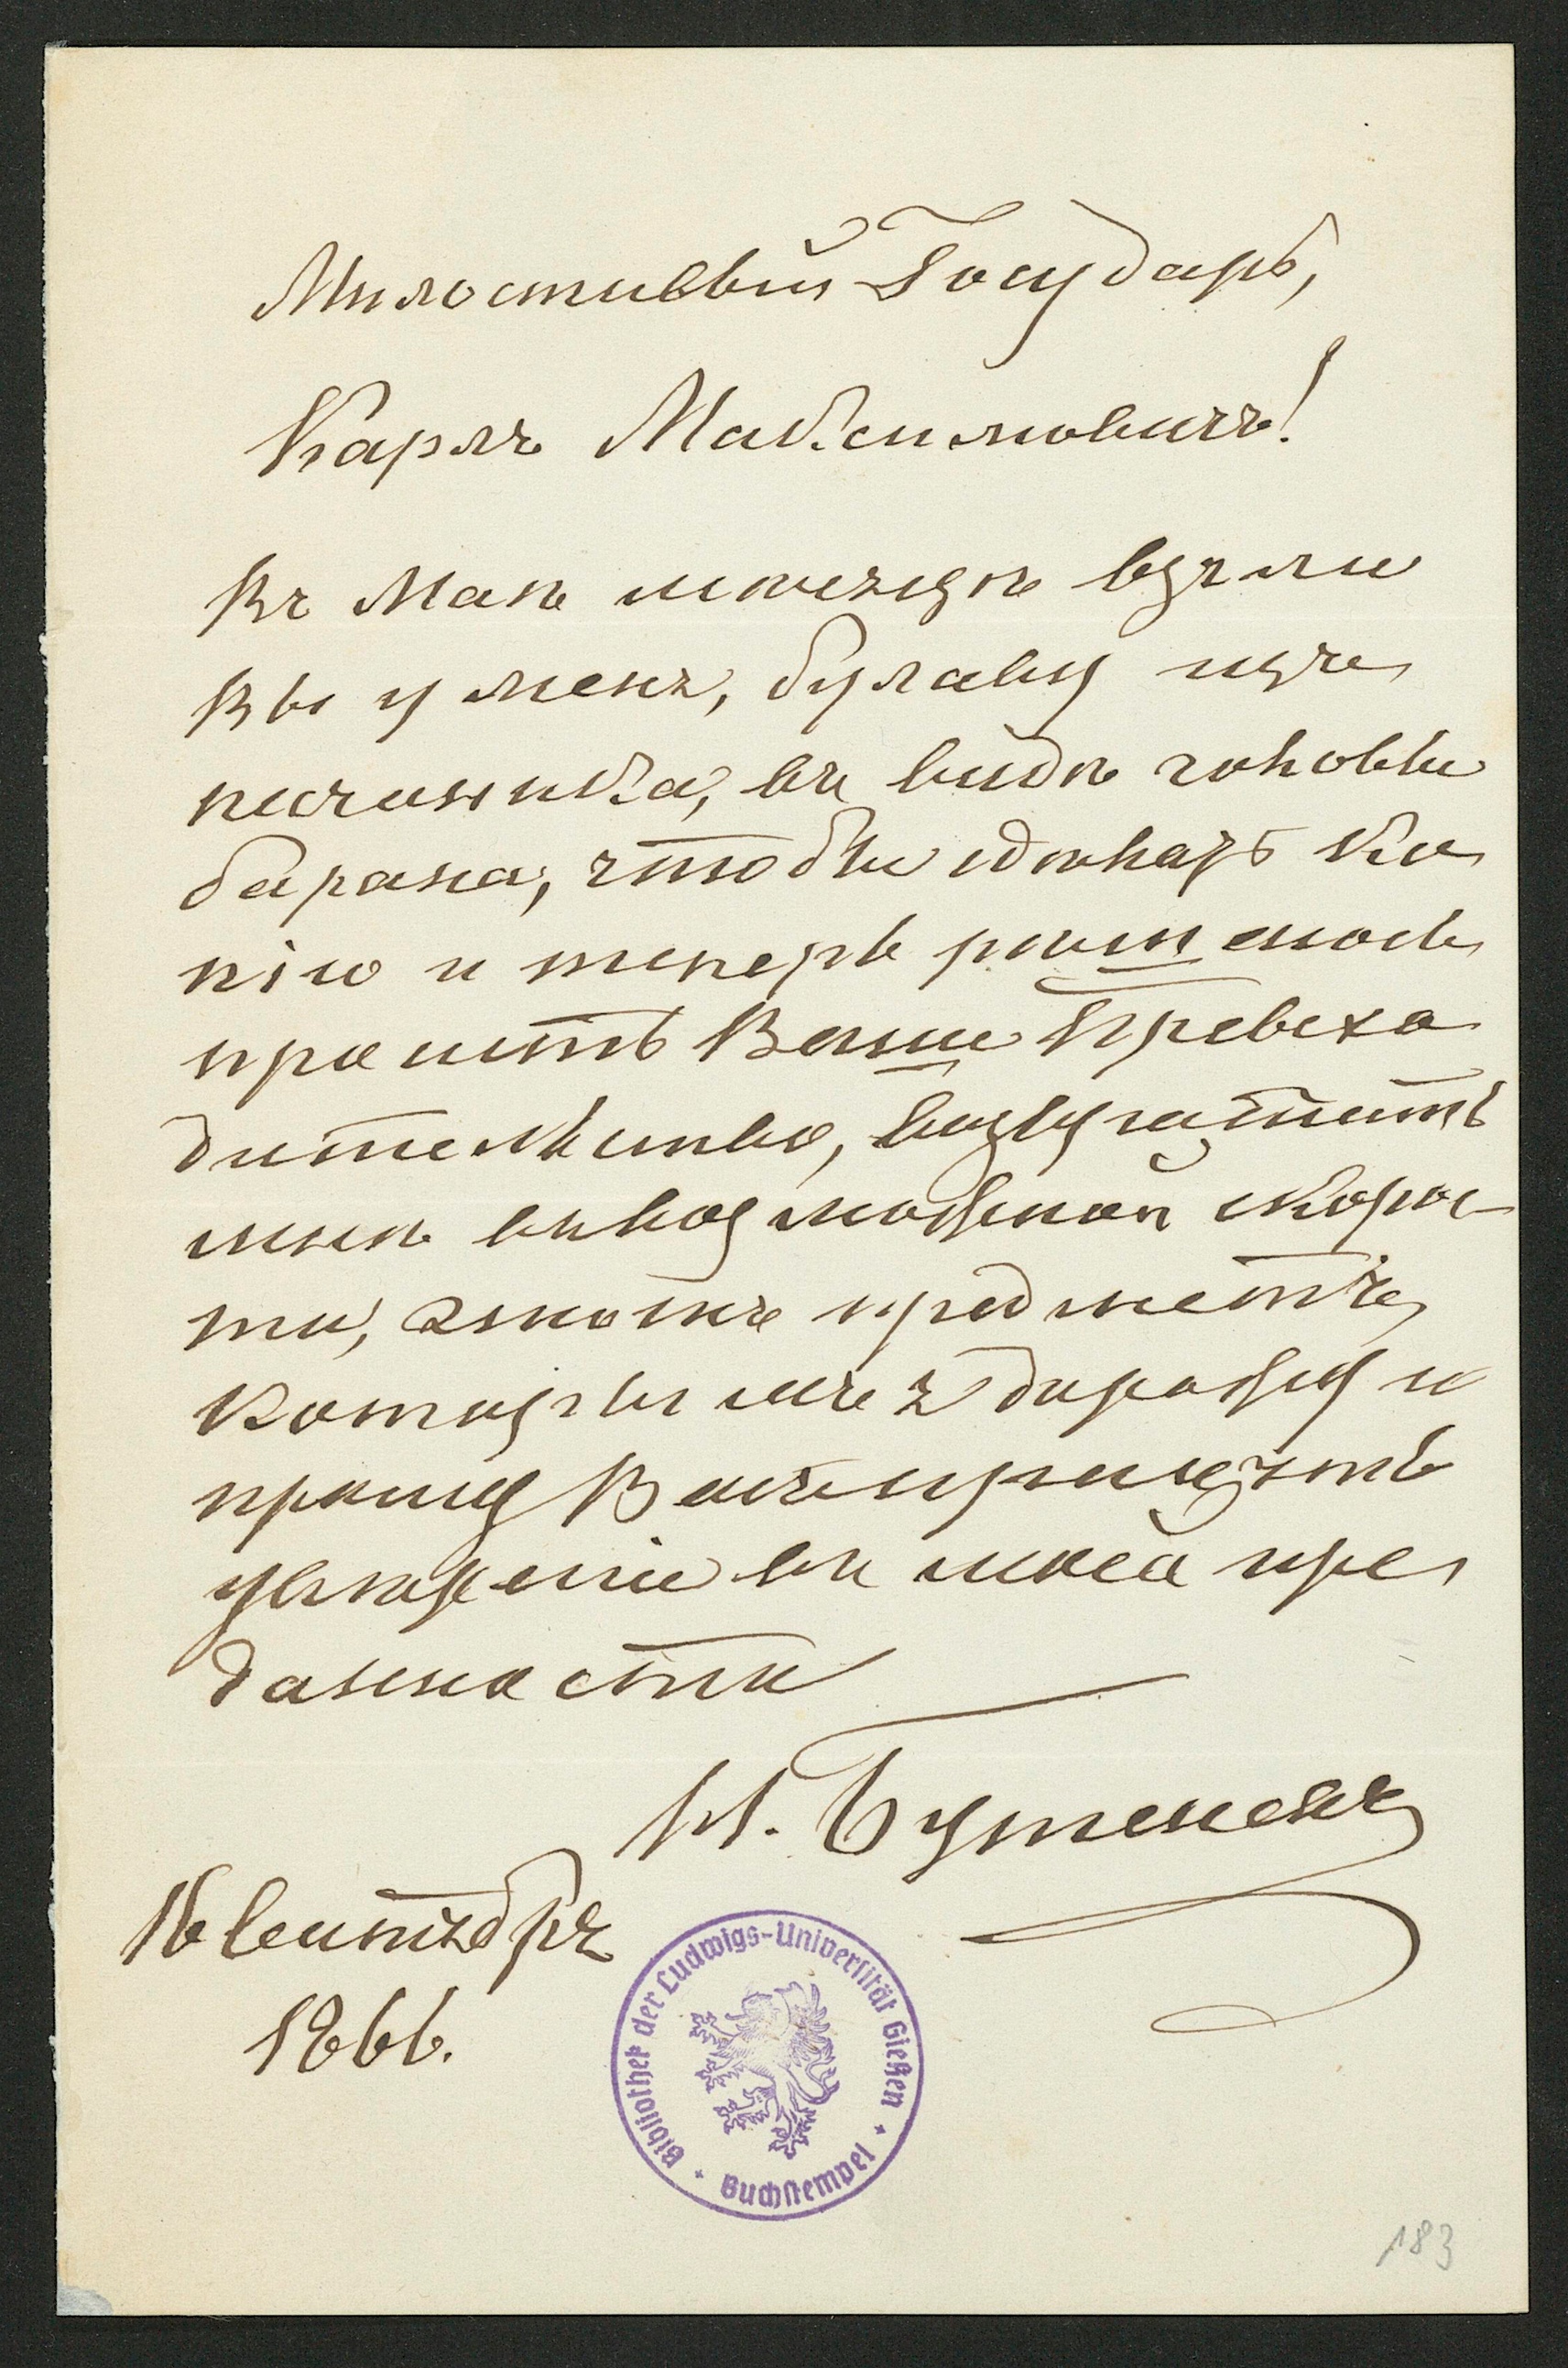 Милостивый Государь,
Карлъ Максимовичъ!
Въ Маѣ мѣсяцѣ взяли
Вы у меня, булаву изъ
песчаника, въ видѣ головы
барана, чтобы сдѣлать ко
пію и теперь
просить Ваше Превосхо
дительство, возвратить
мнѣ въ возможной скорос
ти, этотъ предметъ,
которымъ я дорожу и
прошу Васъ принять
увѣреніе въ моей пре
данности
И. Бутеневъ
16 Сентября
1866.
Bibliothek der Ludwigs-Universität Gießen
Buchstempel
183